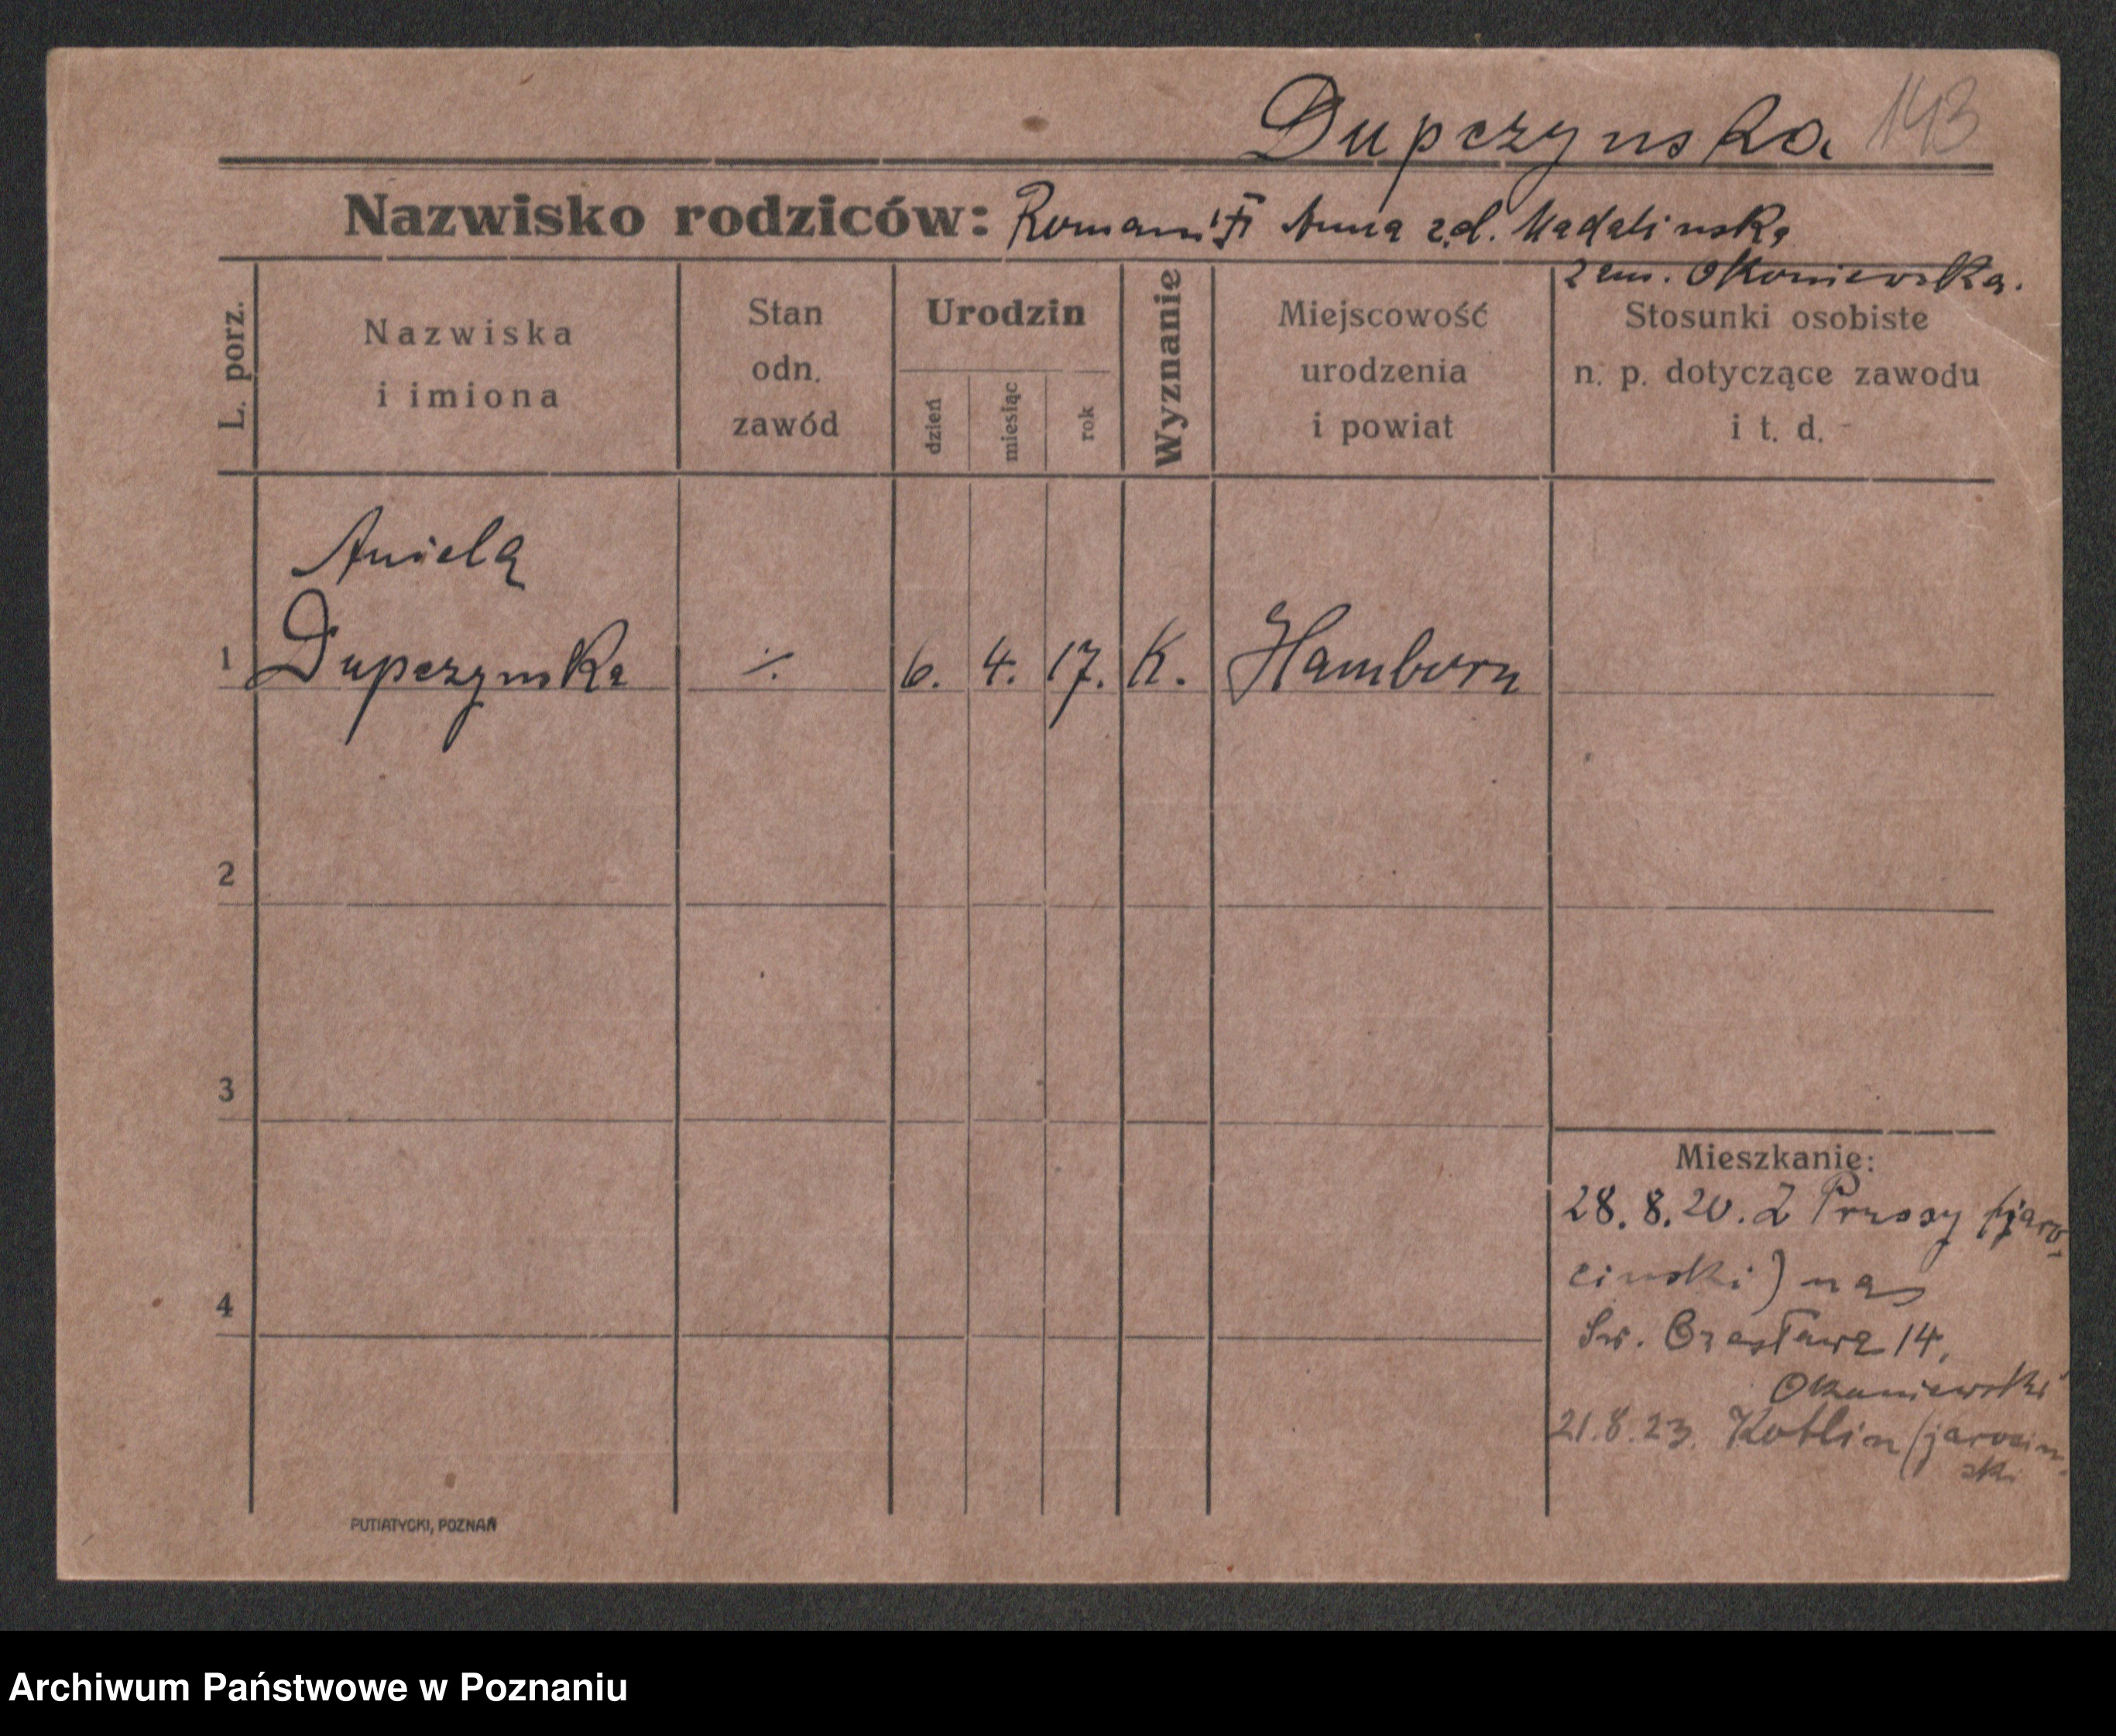 Dupczynska 143
Nazwisko rodziców: Roman i Anna z d. Madalinska
zam. Okoniewska.
L. porz.
Nazwiska
i imiona
Stan
odn.
zawód
Urodzin
dzień
miesiąc
rok
Wyznanie
Miejscowość
urodzenia
i powiat
Stosunki osobiste
n. p. dotyczące zawodu
i t. d.
Aniela
1 Dupczynska ∕. 6. 4. 17. K. Hamborn
2
3
4
Mieszkanie:
28. 8. 20. Z Prusy (jaro-
cinski) na
Św. Czesława 14,
Okoniewski
21. 8. 23. Kotlin (jarocin-
ski
PUTIATYCKI, POZNAŃ
Archiwum Państwowe w Poznaniu